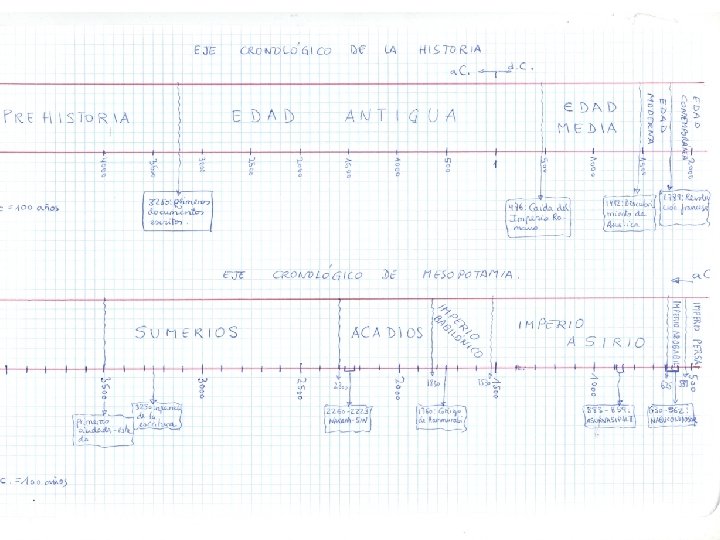 EJE CRONOLÓGICO DE LA HISTORIA
a.C. d.C.
PREHISTORIA
EDAD ANTIGUA
EDAD
MEDIA
EDAD
MODERNA
EDAD
CONTEMPORÁNEA
4000
3500
3000
2500
2000
1500
1000
500
1
500
1000
1500
2000
= 100 años
3250: primeros
documentos
escritos.
476: Caída del
Imperio Ro-
mano
1492: Descubri
miento de
América
1789: Revolu
ción francesa
EJE CRONOLÓGICO DE MESOPOTAMIA.
a.C
SUMERIOS
ACADIOS
IMPERIO
BABILÓNICO
IMPERIO
ASIRIO
IMPERIO NEOBABIL
IMPERIO PERSA
3500
3000
2500
2300
2000
1500
1000
625
500
Primeras
ciudades-esta
do
de la
escritura
2260-2223
NARAM-SIN
1760: Código
de Hammurabi
883-859: